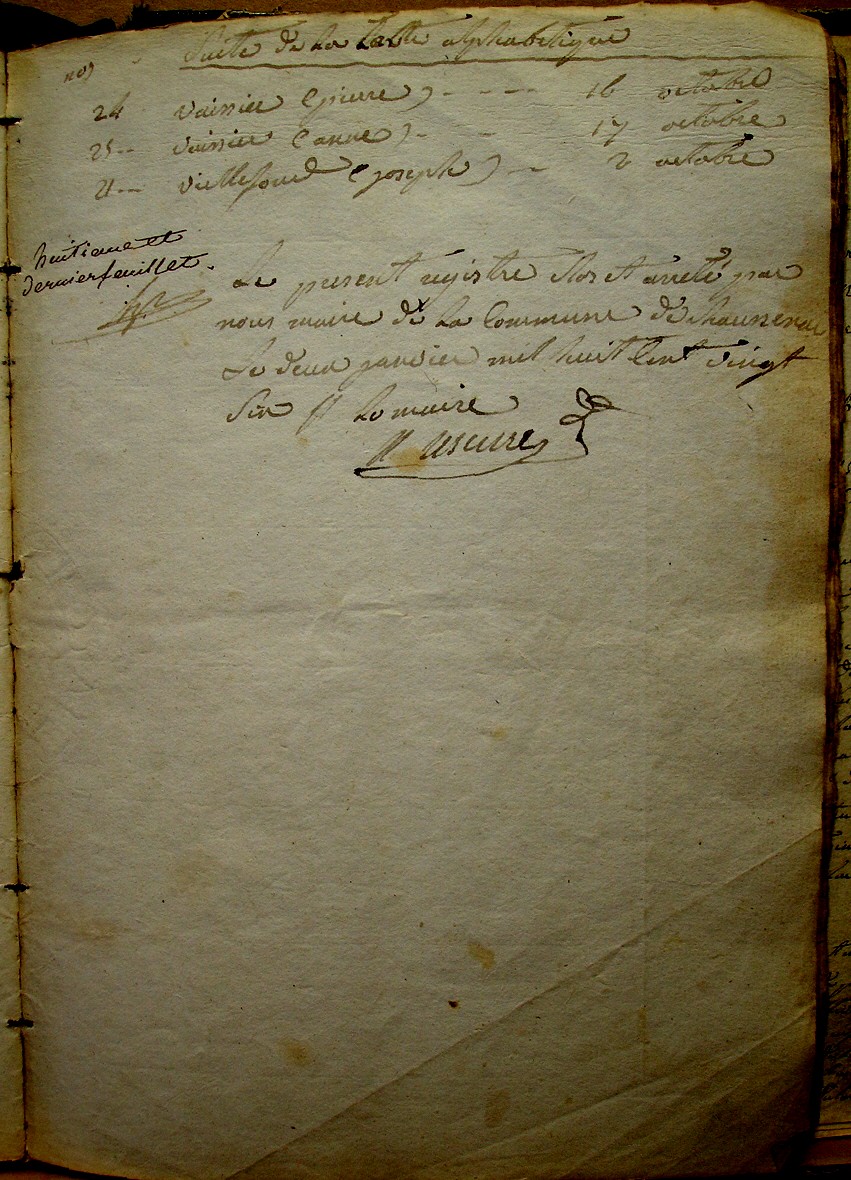 nos Suite de la table alphabetique
24 vaissier (pierre) - - - - 16 octobre
25 -- vaissier (anne) - - 17 octobre
21 -- viellefond (joseph) -- 2 octobre
huitieme et
dernier feuillet.
Le present registre clos et arreté par
nous maire de la Commune de
Le deux janvier mil huit cent vingt
Six // Le maire